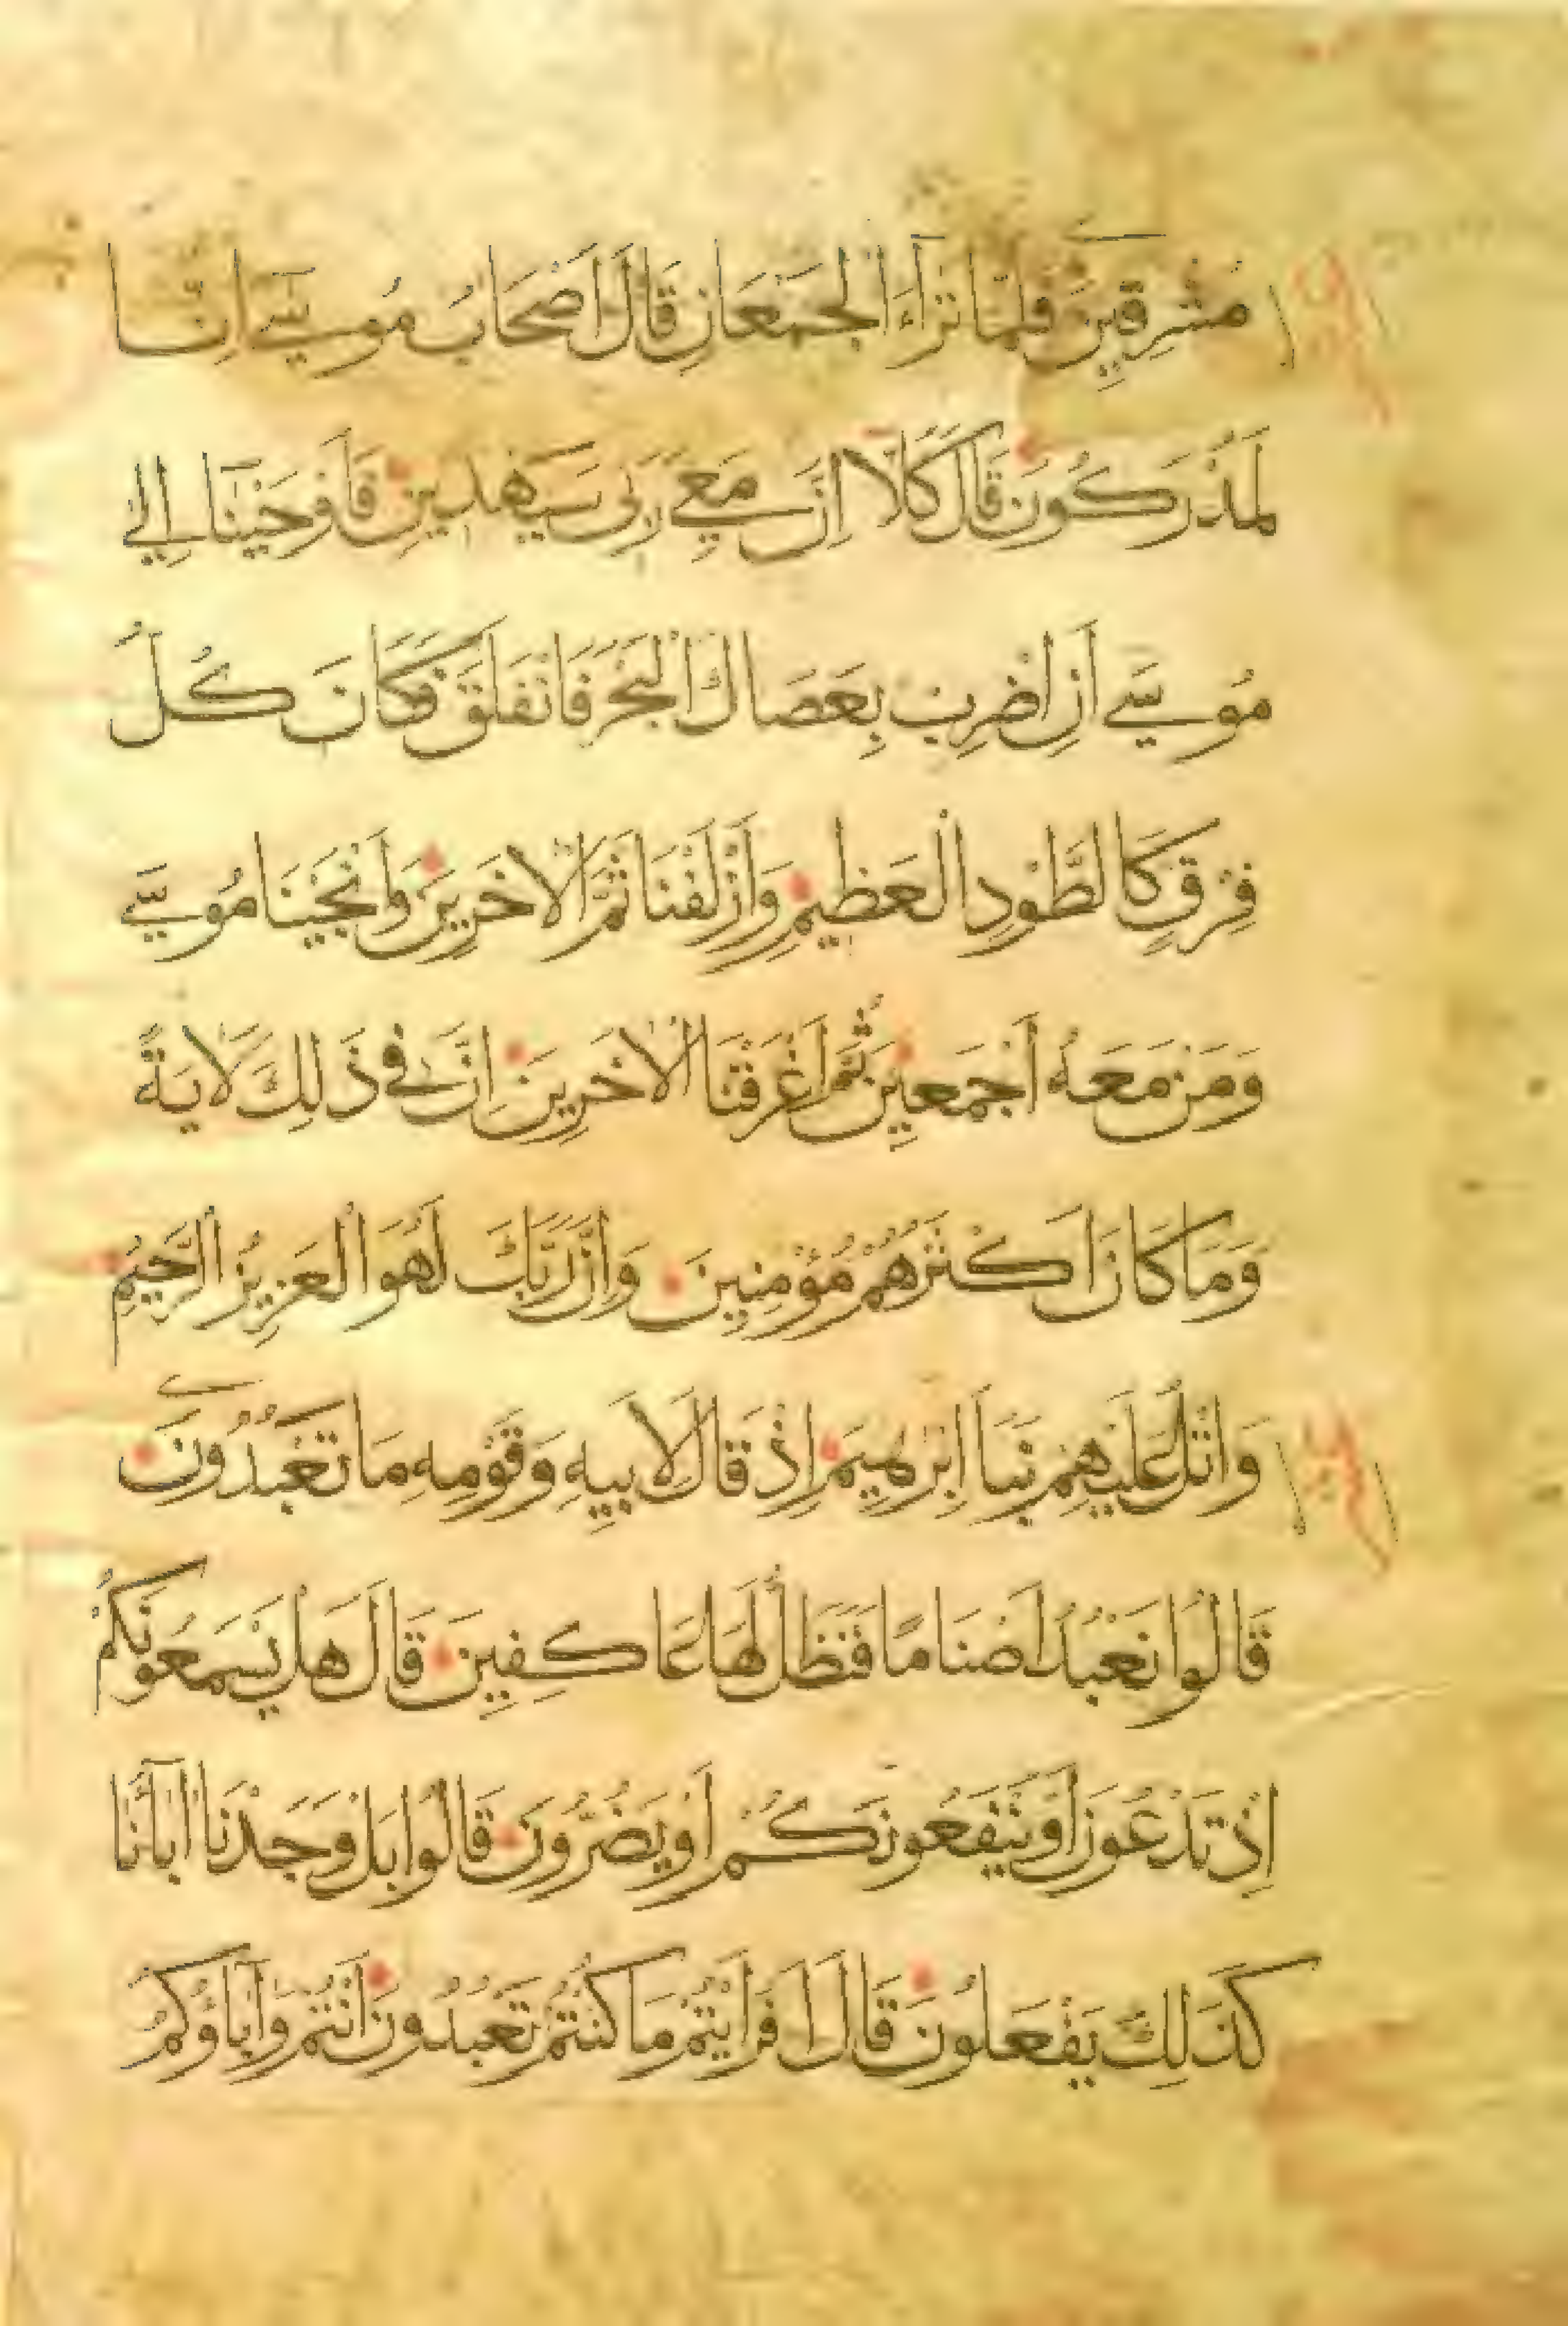 مُشْرِقِينَ فَلَمَّا تَرَاءَ الْجَمْعَانِ قَالَ اَصْحَابُ مُوسَى اِنَّا
لَمُدْرَكُونَ قَالَ كَلَّا اِنَّ مَعِيَ رَبِّي سَيَهْدِينِ فَاَوْحَيْنَا اِلَى
مُوسَى اَنِ اضْرِبْ بِعَصَاكَ الْبَحْرَ فَانْفَلَقَ فَكَانَ كُلُّ
فِرْقٍ كَالطَّوْدِ الْعَظِيمِ وَاَزْلَفْنَا ثَمَّ الْاخَرِينَ وَاَنْجَيْنَا مُوسَى
وَمَنْ مَعَهُ اَجْمَعِينَ ثُمَّ اَغْرَقْنَا الْاخَرِينَ اِنَّ فِي ذَلِكَ لَايَةً
وَمَا كَانَ اَكْثَرُهُمْ مُؤْمِنِينَ وَاِنَّ رَبَّكَ لَهُوَ الْعَزِيزُ الرَّحِيمُ
وَاتْلُ عَلَيْهِمْ نَبَاَ اِبْرٰهِيمَ اِذْ قَالَ لِاَبِيهِ وَقَوْمِهِ مَا تَعْبُدُونَ
قَالُوا نَعْبُدُ اَصْنَامًا فَنَظَلُّ لَهَا عَاكِفِينَ قَالَ هَلْ يَسْمَعُونَكُمْ
اِذْ تَدْعُونَ اَوْ يَنْفَعُونَكُمْ اَوْ يَضُرُّونَ قَالُوا بَلْ وَجَدْنَا اٰبَاۤءَنَا
كَذَلِكَ يَفْعَلُونَ قَالَ اَفَرَاَيْتُمْ مَا كُنْتُمْ تَعْبُدُونَ اَنْتُمْ وَاٰبَاؤُكُمُ